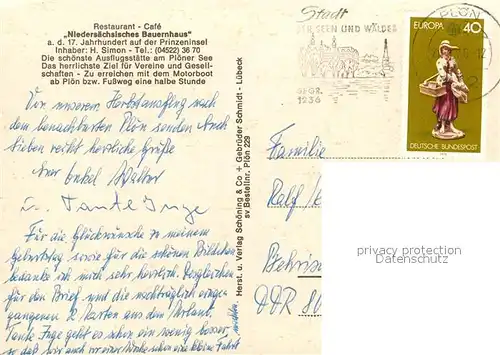 Restaurant - Café
„Niedersächsisches Bauernhaus"
a. d. 17. Jahrhundert auf der Prinzeninsel
Inhaber: H. Simon - Tel.: (04522) 36 70
Die schönste Ausflugsstätte am Plöner See
Das herrlichste Ziel für Vereine und Gesell-
schaften - Zu erreichen mit dem Motorboot
ab Plön bzw. Fußweg eine halbe Stunde
Von unserem Herbstausflug nach
dem benachbarten Plön senden Euch
Lieben recht herzliche Grüße
Euer Onkel Walter
u. Tante Inge
Für die Glückwünsche zu meinem
Geburtstag sowie für die schönen Bildchen
bedanke ich mich sehr herzlich. Desgleichen
für den Brief und die nachträglich eingegangenen
2 Karten aus dem Urlaub.
Tante Inge geht es schon ein wenig besser,
so daß wir auch schon eine kleine Fahrt
Herst. u. Verlag Schöning & Co + Gebrüder Schmidt - Lübeck
sv Bestellnr. Plön 229
Stadt
DER SEEN UND WÄLDER
GEGR.
1236
PLÖN
EUROPA 40
DEUTSCHE BUNDESPOST
Familie
Ralf
DDR
privacy protection
Datenschutz